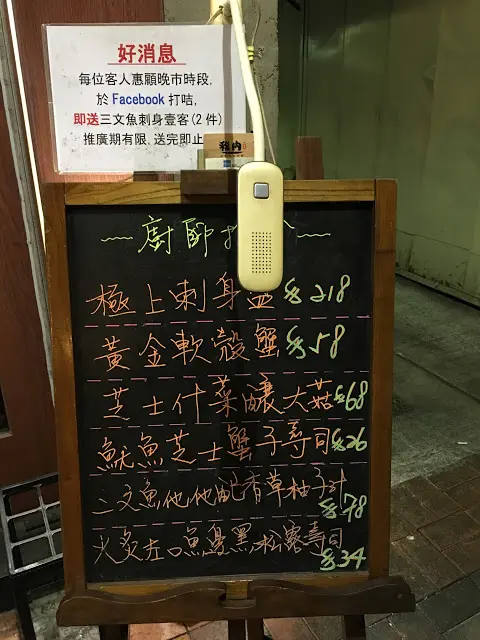 好消息
每位客人惠顧晚市時段,
於 Facebook 打咭,
即送三文魚刺身壹客(2件)
推廣期有限,送完即止
稚内
~廚師推介~
極上刺身盛 $218
黃金軟殼蟹 $58
芝士什菜釀大菇 $68
魷魚芝士蟹子壽司 $26
三文魚他他配香草柚子汁
$78
火炙左口魚邊黑松露壽司
$34